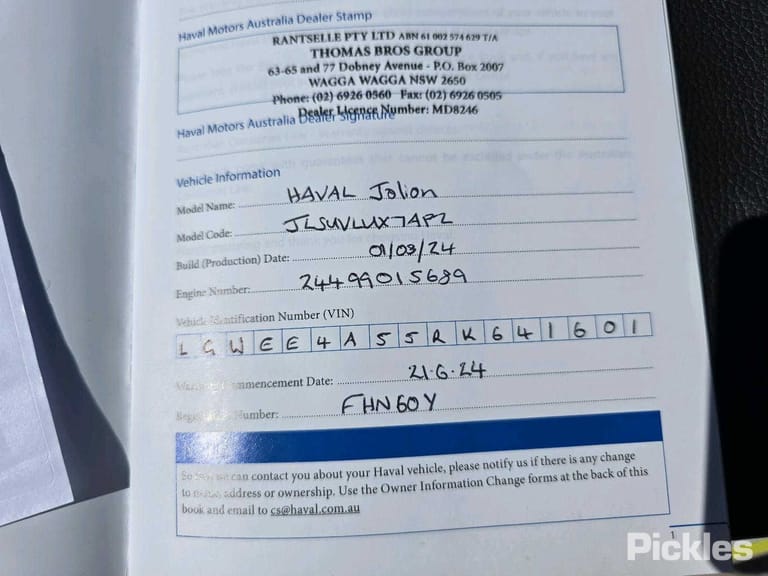 Haval Motors Australia Dealer Stamp
RANTSELLE PTY LTD ABN 61 002 574 629 T/A
THOMAS BROS GROUP
63-65 and 77 Dobney Avenue - P.O. Box 2007
WAGGA WAGGA NSW 2650
Phone: (02) 6926 0560 Fax: (02) 6926 0505
Dealer Licence Number: MD8246
Haval Motors Australia Dealer Signature
Vehicle Information
Model Name: HAVAL Jolion
Model Code: JLSUVLUX7AP2
Build (Production) Date: 01/03/24
Engine Number: 24499015689
Vehicle Identification Number (VIN)
L G W E E 4 A 5 5 R K 6 4 1 6 0 1
Warranty Commencement Date: 21.6.24
Registration Number: FHN60Y
So we can contact you about your Haval vehicle, please notify us if there is any change
to name, address or ownership. Use the Owner Information Change forms at the back of this
book and email to cs@haval.com.au
1
Pickles